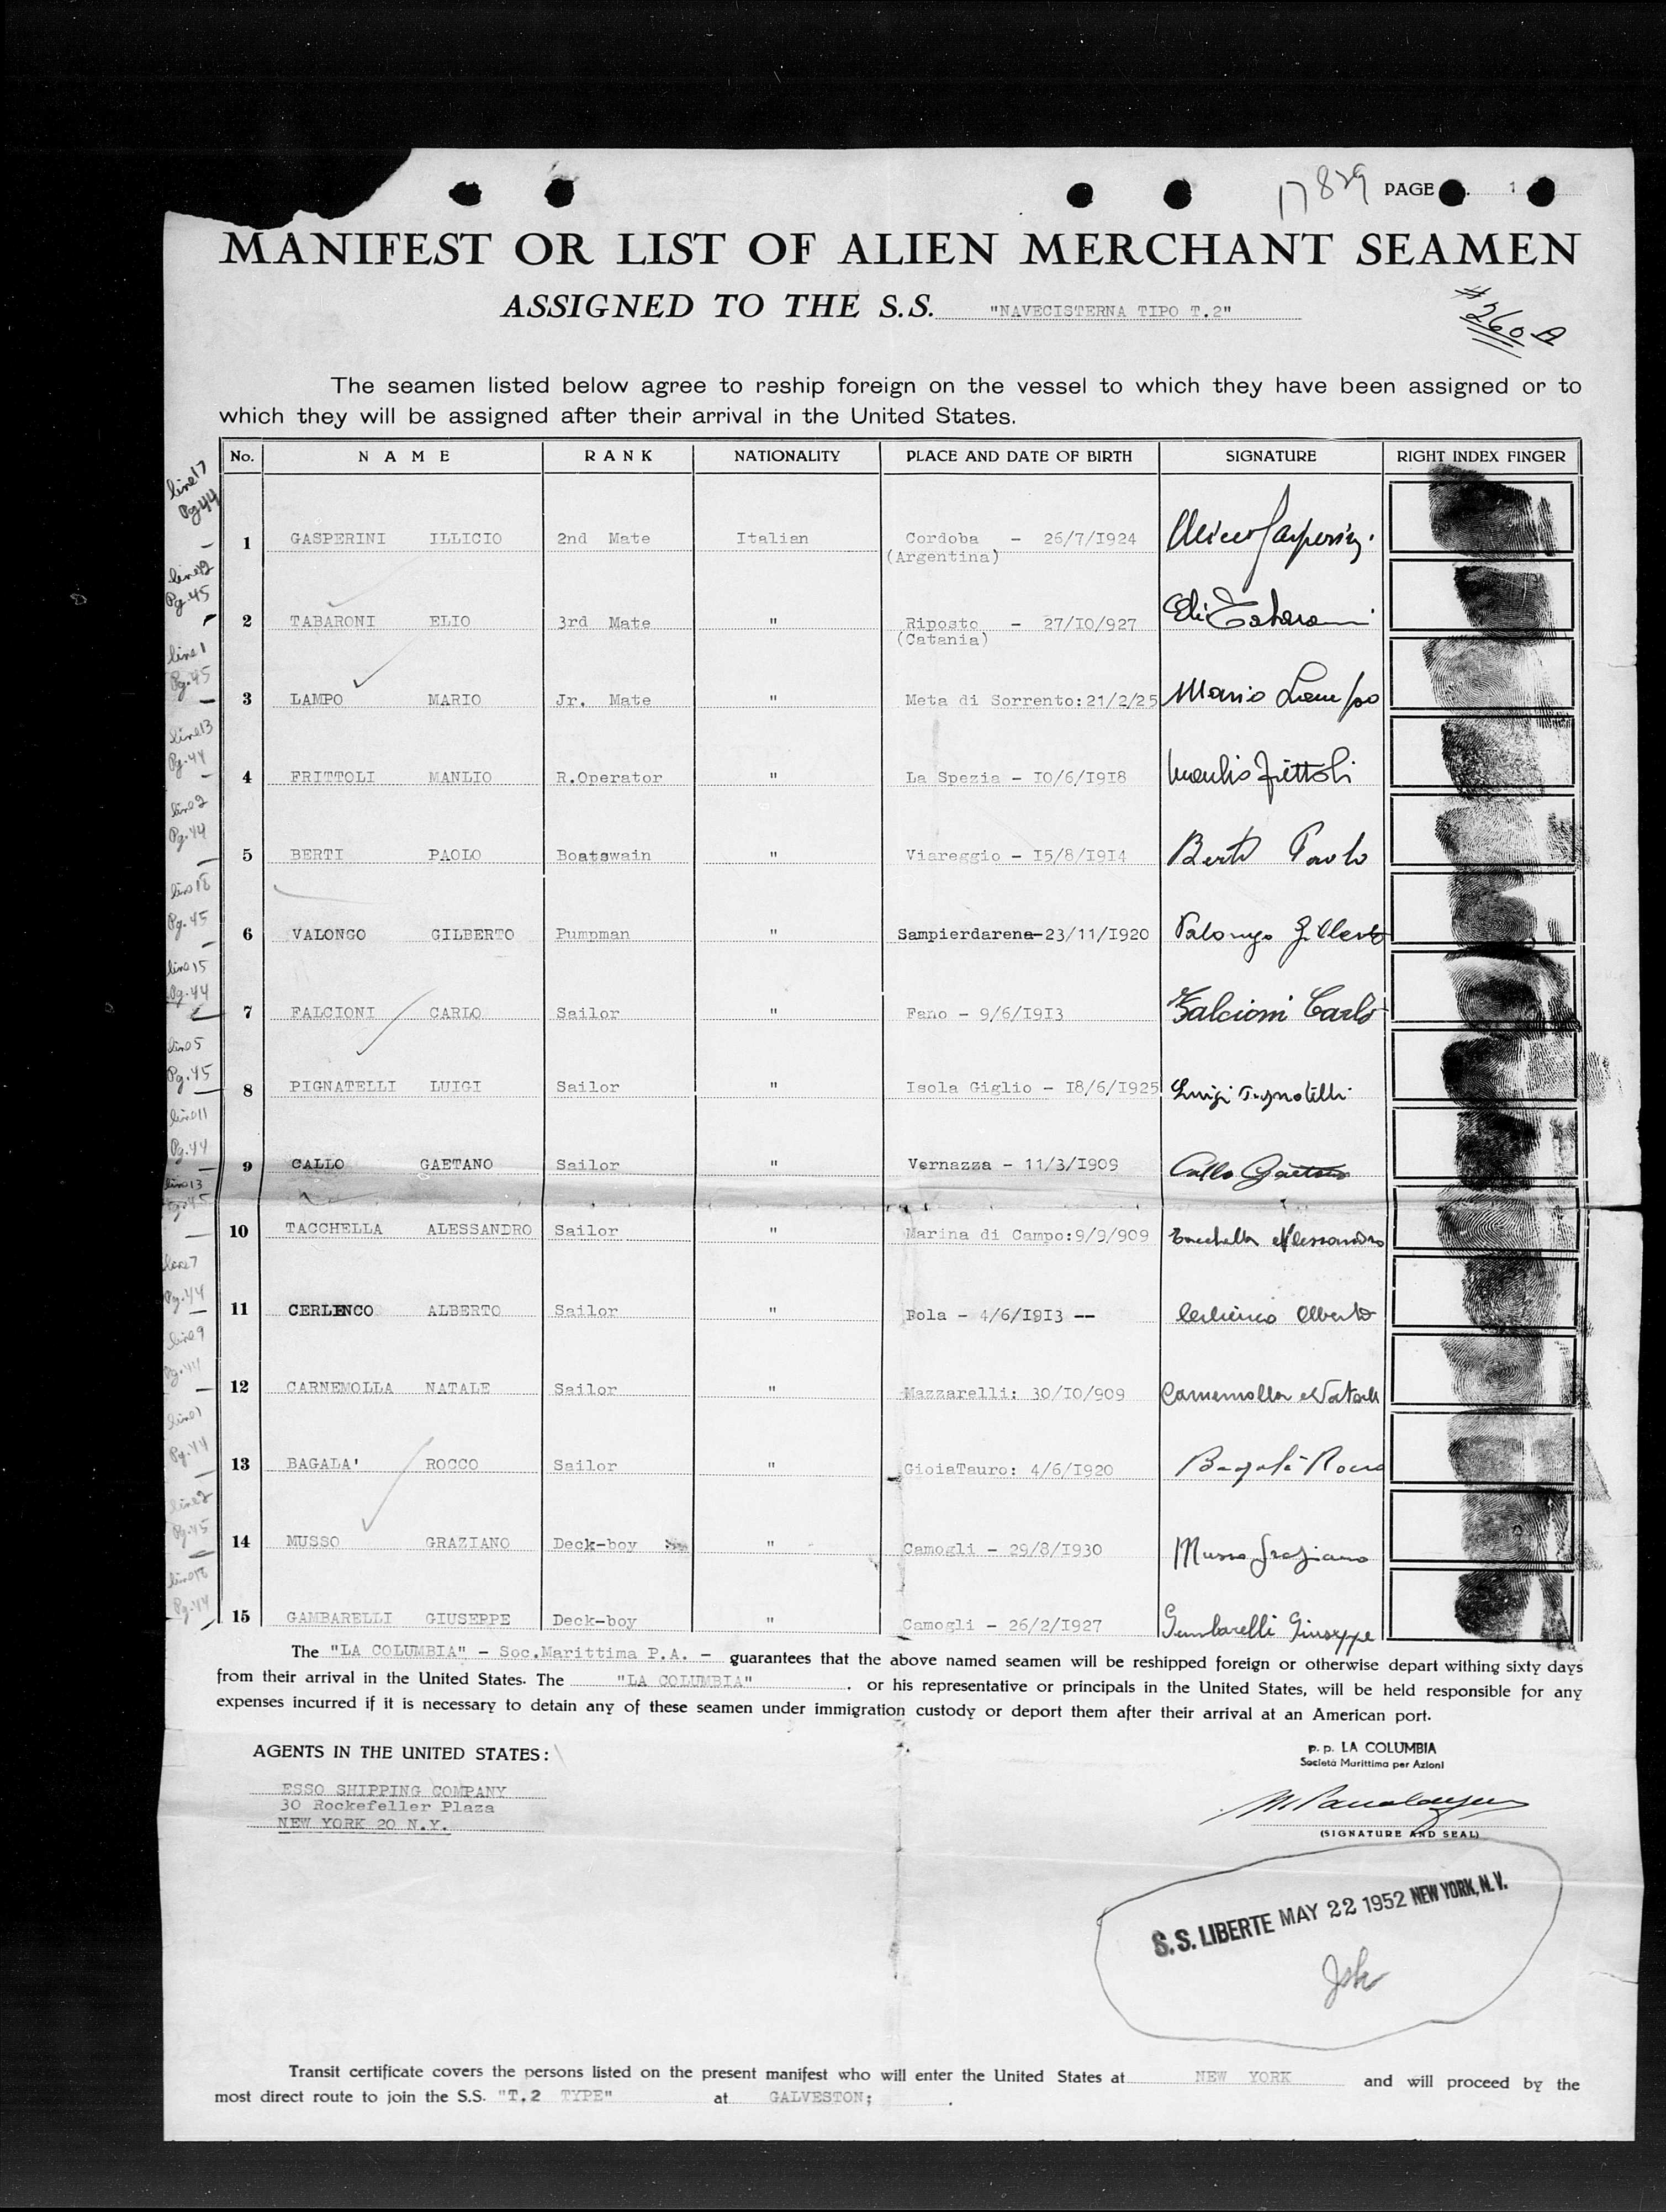 17829 PAGE 1
MANIFEST OR LIST OF ALIEN MERCHANT SEAMEN
ASSIGNED TO THE S.S. "NAVECISTERNA TIPO T.2"
#260 A
The seamen listed below agree to reship foreign on the vessel to which they have been assigned or to
which they will be assigned after their arrival in the United States.
No. NAME RANK NATIONALITY PLACE AND DATE OF BIRTH SIGNATURE RIGHT INDEX FINGER
line 17
Pg 44
1 GASPERINI ILLICIO 2nd Mate Italian Cordoba - 26/7/I924
(Argentina)
line 12
Pg. 45
2 TABARONI ELIO 3rd Mate " Riposto - 27/I0/927 Elio Tabaroni
(Catania)
line 1
Pg. 45
3 LAMPO MARIO Jr. Mate " Meta di Sorrento:21/2/25 Mario Lampo
line 13
Pg. 44
4 FRITTOLI MANLIO R.Operator " La Spezia - I0/6/I9I8 Manlio Frittoli
line 2
Pg. 44
5 BERTI PAOLO Boatswain " Viareggio - I5/8/I9I4 Berti Paolo
line 18
Pg. 45
6 VALONGO GILBERTO Pumpman " Sampierdarena-23/11/I920 Valongo Gilberto
line 15
Pg. 44
7 FALCIONI CARLO Sailor " Fano - 9/6/I9I3 Falcioni Carlo
line 5
Pg. 45
8 PIGNATELLI LUIGI Sailor " Isola Giglio - I8/6/I925 Luigi Pignatelli
line 11
Pg. 44
9 CALLO GAETANO Sailor " Vernazza - 11/3/I909 Callo Gaetano
line 13
Pg. 45
10 TACCHELLA ALESSANDRO Sailor " Marina di Campo:9/9/909 Tacchella Alessandro
line 7
Pg. 44
11 CERLENCO ALBERTO Sailor " Pola - 4/6/I9I3 -- Alberto
line 9
Pg. 44
12 CARNEMOLLA NATALE Sailor " Mazzarelli: 30/I0/909 Carnemolla Natale
line 1
Pg. 44
13 BAGALA' ROCCO Sailor " GioiaTauro: 4/6/I920 Bagalà Rocco
line 2
Pg. 45
14 MUSSO GRAZIANO Deck-boy " Camogli - 29/8/I930 Musso Graziano
line 16
Pg. 44
15 GAMBARELLI GIUSEPPE Deck-boy " Camogli - 26/2/I927 Gambarelli Giuseppe
The "LA COLUMBIA" - Soc.Marittima P.A. - guarantees that the above named seamen will be reshipped foreign or otherwise depart withing sixty days
from their arrival in the United States. The "LA COLUMBIA" . or his representative or principals in the United States, will be held responsible for any
expenses incurred if it is necessary to detain any of these seamen under immigration custody or deport them after their arrival at an American port.
AGENTS IN THE UNITED STATES:
ESSO SHIPPING COMPANY
30 Rockefeller Plaza
NEW YORK 20 N.Y.
p. p. LA COLUMBIA
Società Marittima per Azioni
(SIGNATURE AND SEAL)
S.S. LIBERTE MAY 22 1952 NEW YORK, N.Y.
Transit certificate covers the persons listed on the present manifest who will enter the United States at NEW YORK and will proceed by the
most direct route to join the S.S. "T.2 TYPE" at GALVESTON; .